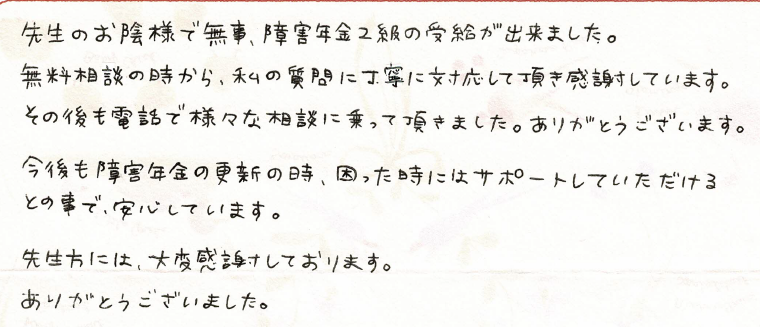 先生のお陰様で無事、障害年金2級の受給が出来ました。
無料相談の時から、私の質問に丁寧に対応して頂き感謝しています。
その後も電話で様々な相談に乗って頂きました。ありがとうございます。
今後も障害年金の更新の時、困った時にはサポートしていただける
との事で、安心しています。
先生方には、大変感謝しております。
ありがとうございました。